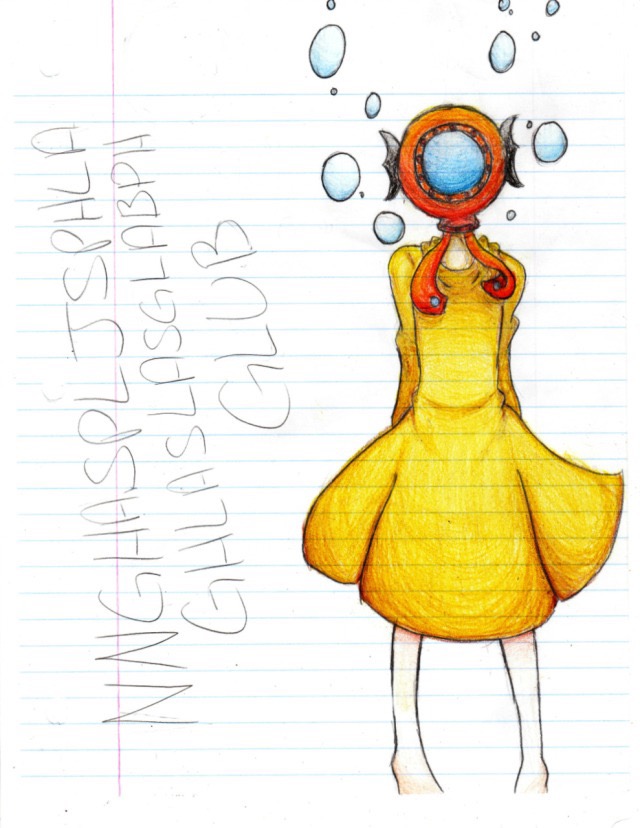 NNGHASPL JSPHLA
GHLASLASGLABPH
GLUB